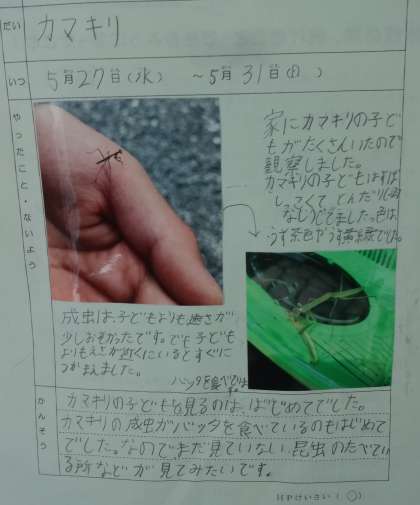 だい カマキリ
いつ 5月27日(水) ～5月31日(日)
やったこと・ないよう
家にカマキリの子ど
もがたくさんいたので
観察しました。
カマキリの子どもはすば
しっこくて とんだり
などしてました。色は
うす茶色やうす黄緑でした。
成虫は、子どもよりも速さが
少しおそかったです。でも子ども
よりもえさが近くにいるとすぐに
つかまえました。
バッタを食べて
かんそう
カマキリの子どもを見るのは、はじめてでした。
カマキリの成虫がバッタを食べているのもはじめて
でした。なのでまだ見ていない昆虫のたべてい
る所などが見てみたいです。